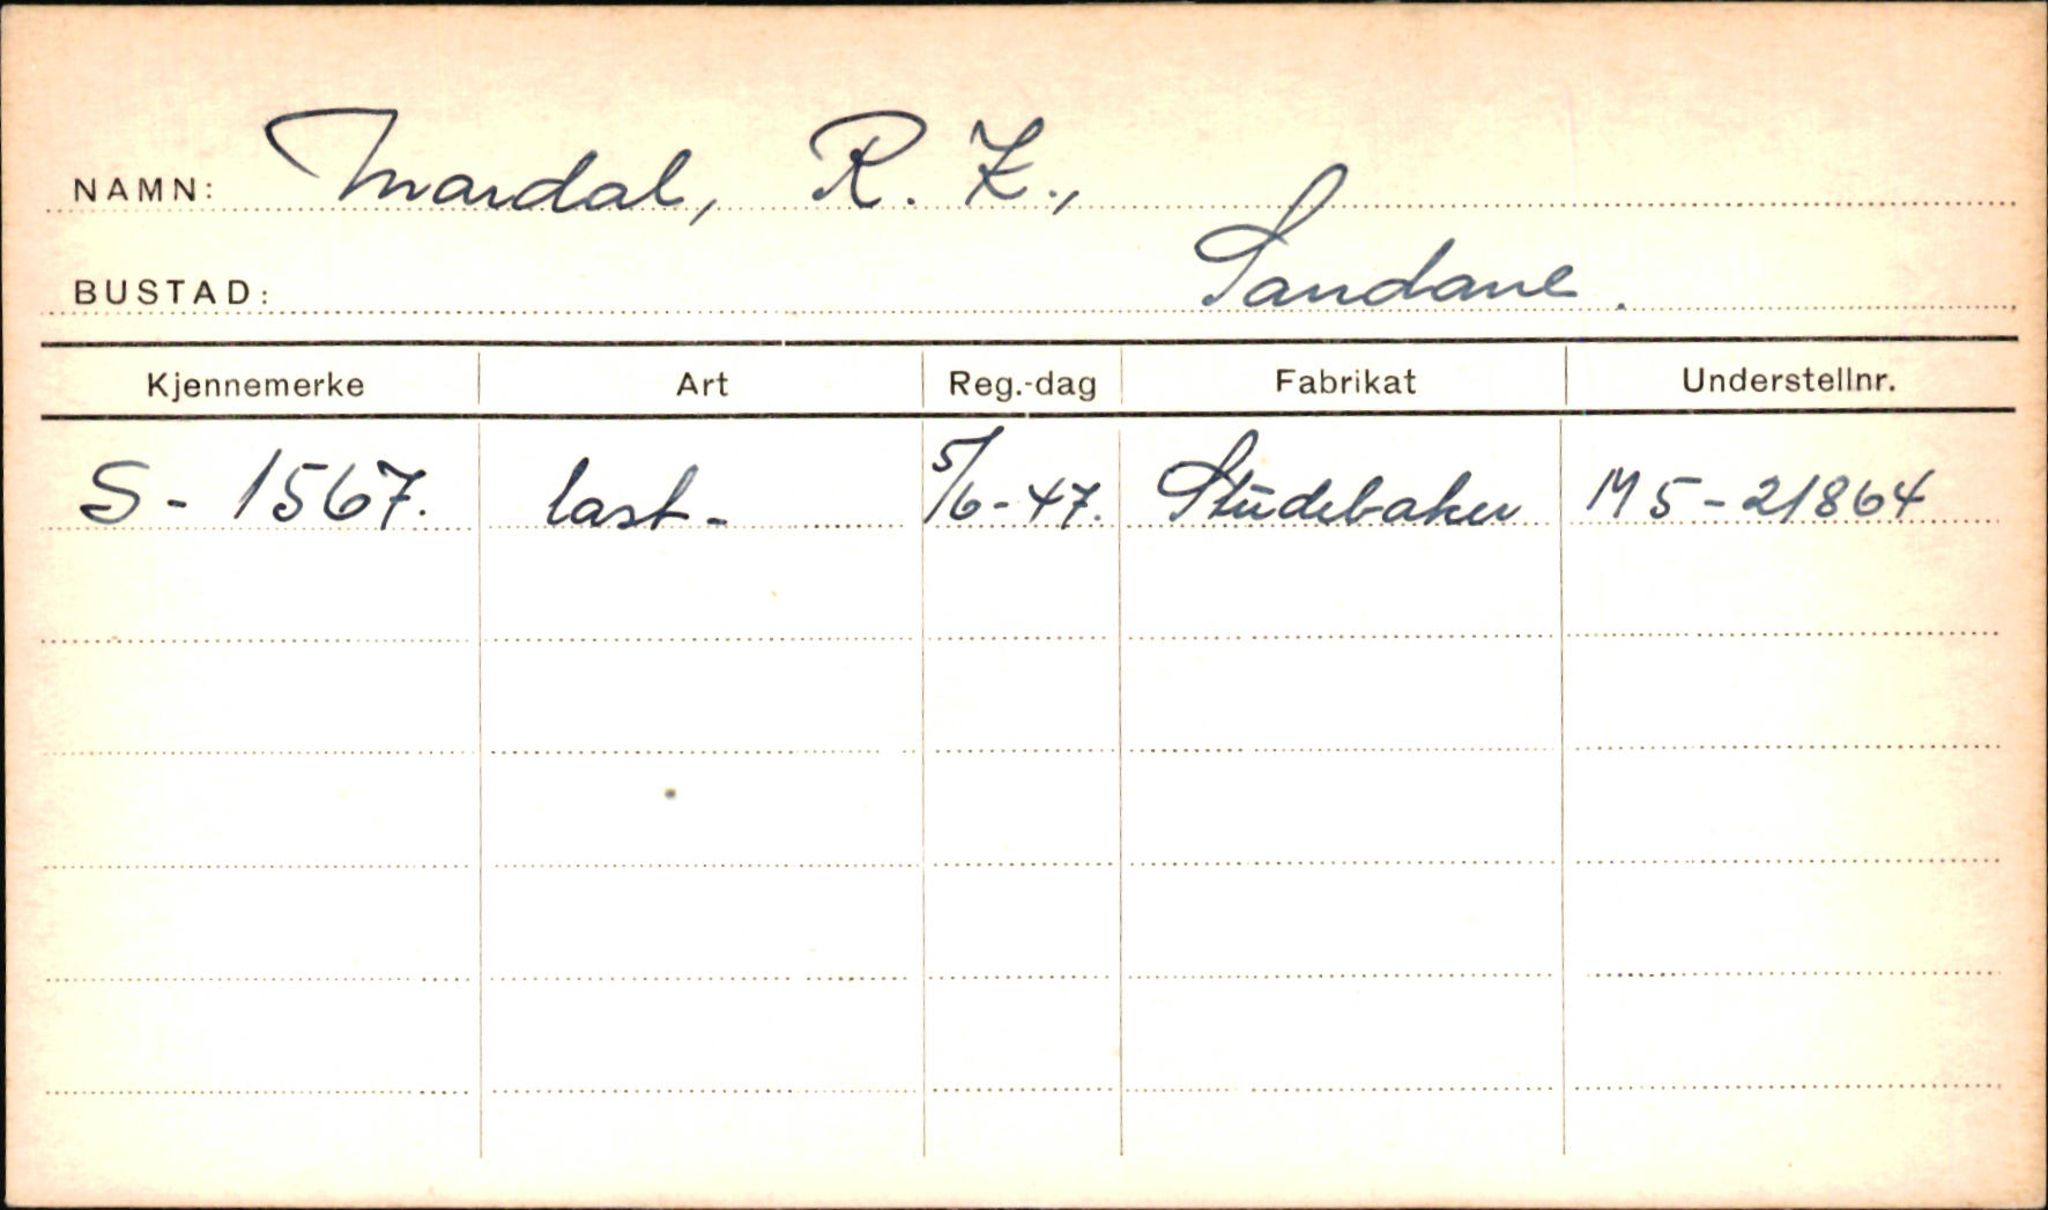 NAMN: Mardal, R. Z.,
BUSTAD: Sandane.
Kjennemerke Art Reg.-dag Fabrikat Understellnr.
S - 1567. last - 5/6-47. Studebaker M5-21864